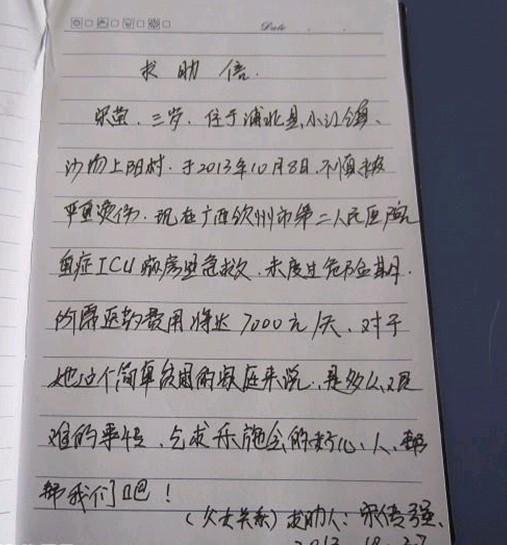 Date . .
求助信.
宋萤、三岁、住于浦北县小江镇、
沙场上阳村、于2013年10月8日、不慎被
严重烫伤、现在广西钦州市第二人民医院
重症ICU病房里急救、未度过危险期.
的需医药费用将达7000元/天、对于
她这个简单贫困的家庭来说、是多么艰
难的事情、乞求乐施会的好心人、帮
帮我们吧！
(父女关系)求助人：宋传强、
2013.10.27